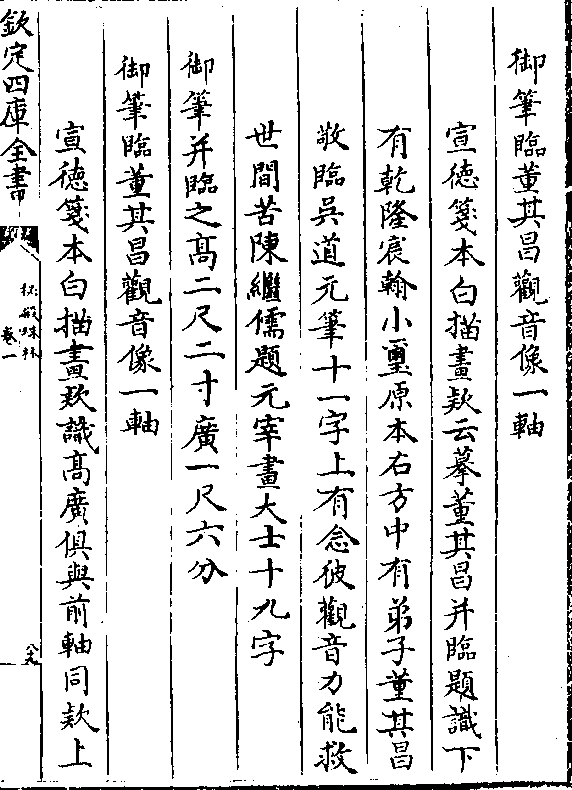 御筆臨董其昌觀音像一軸
宣德箋本白描畫款云摹董其昌并臨題識下
有乾隆宸翰小璽原本右方中有弟子董其昌
敬臨吳道元筆十一字上有念彼觀音力能救
世間苦陳繼儒題元宰畫大士十九字
御筆并臨之髙二尺二寸廣一尺六分
御筆臨董其昌觀音像一軸
宣徳箋本白描畫款識髙廣俱與前軸同款上
欽定四庫全書
秘殿珠林
卷一